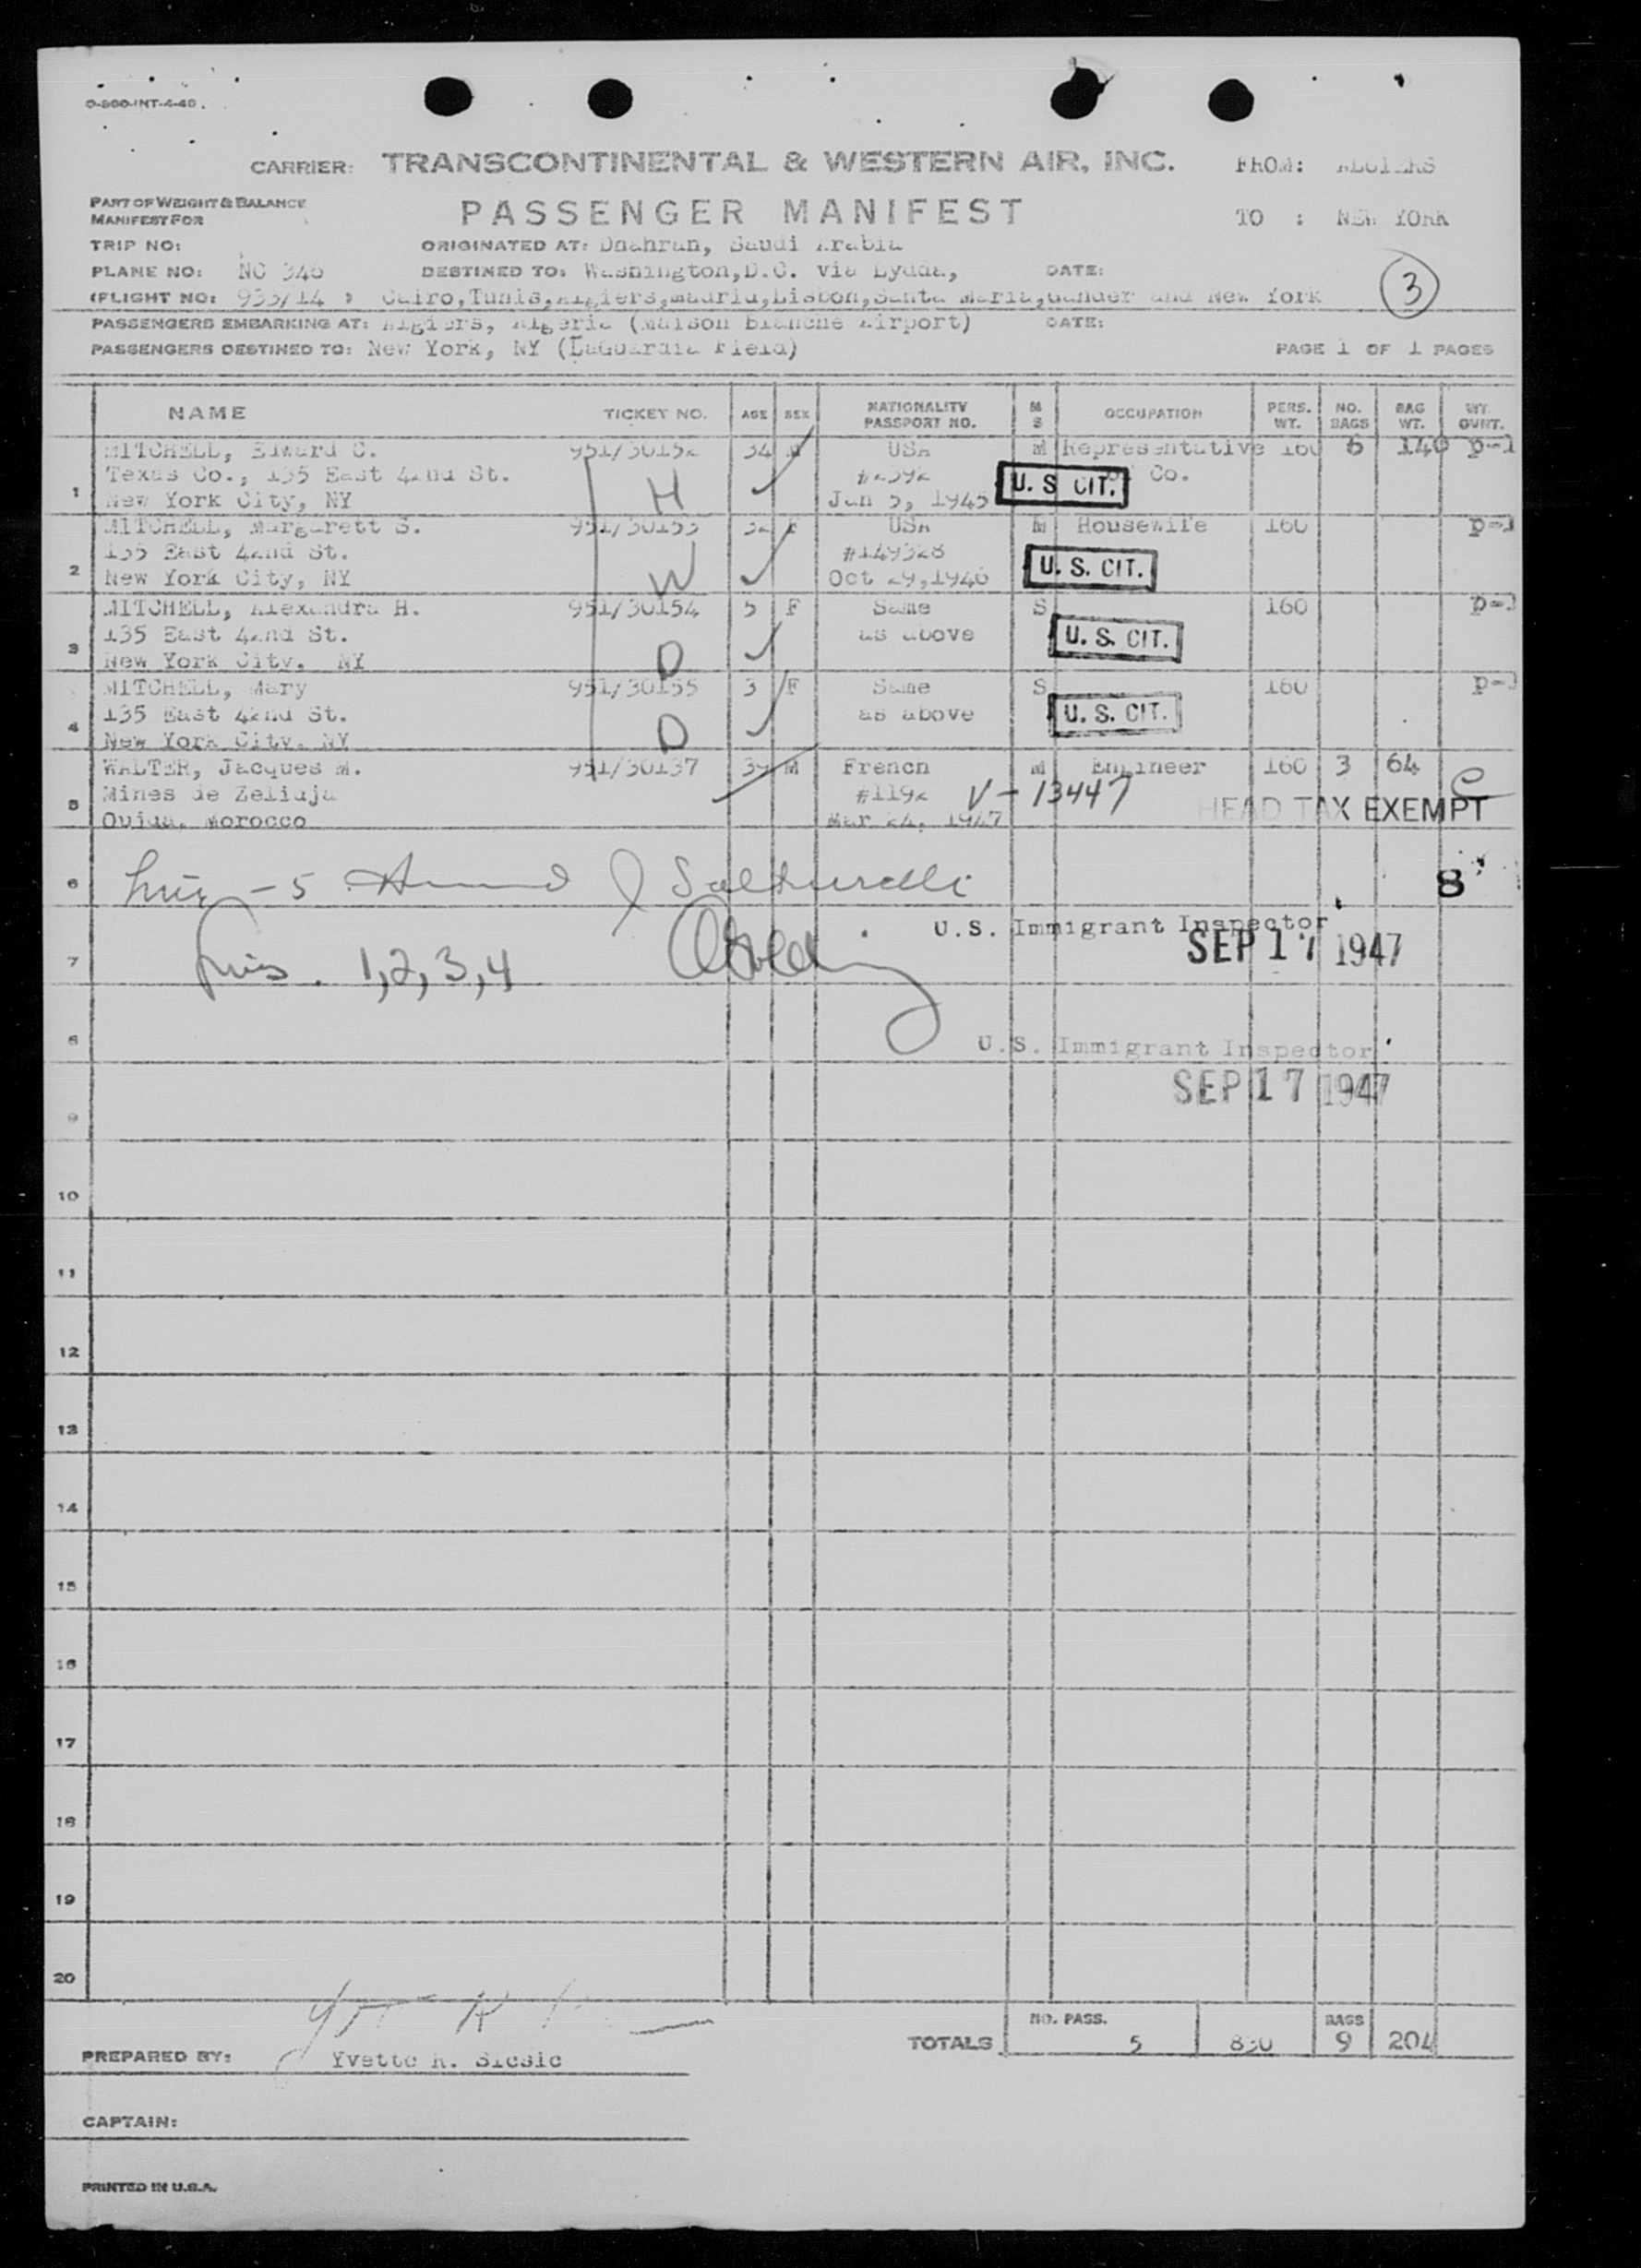 O-800-INT-4-40.
CARRIER: TRANSCONTINENTAL & WESTERN AIR, INC. FROM: ALGIERS
PART OF WEIGHT & BALANCE
MANIFEST FOR PASSENGER MANIFEST TO : NEW YORK
TRIP NO: ORIGINATED AT: Dhahran, Saudi Arabia
PLANE NO: NC 346 DESTINED TO: Washington,D.C. via Lydda, DATE:
(FLIGHT NO: 933/14 ) Cairo,Tunis,Algiers,Madrid,Lisbon,Santa Maria,Gander and New York 3
PASSENGERS EMBARKING AT: Algiers, Algeria (Maison Blanche Airport) DATE:
PASSENGERS DESTINED TO: New York, NY (LaGuardia Field) PAGE 1 OF 1 PAGES
NAME TICKET NO. AGE SEX NATIONALITY PASSPORT NO. M S OCCUPATION PERS. WT. NO. BAGS BAG WT. WT. OVRT.
MITCHELL, Edward C. 951/30152 34 M USA M Representative 160 6 140 p-1
Texas Co., 135 East 42nd St. H #2392 U. S. CIT. Co.
1 New York City, NY Jan 5, 1945
MITCHELL, Margarett S. 951/30153 32 F USA M Housewife 160 p-1
135 East 42nd St. #149328
2 New York City, NY W Oct 29,1946 U. S. CIT.
MITCHELL, Alexandra H. 951/30154 5 F Same S 160 p-1
135 East 42nd St. as above U. S. CIT.
3 New York City, NY D
MITCHELL, Mary 951/30155 3 F Same S 160 p-1
135 East 42nd St. as above U. S. CIT.
4 New York City, NY D
WALTER, Jacques M. 951/30137 39 M French M Engineer 160 3 64
Mines de Zelidja #1192 V-13447 C
5 Oujda, Morocco Mar 24, 1947 HEAD TAX EXEMPT
6 - 5 8
U.S. Immigrant Inspector
7 1,2,3,4 SEP 17 1947
8 U.S. Immigrant Inspector
SEP 17 1947
9
10
11
12
13
14
15
16
17
18
19
20
NO. PASS. BAGS
TOTALS 5 830 9 204
PREPARED BY: Yvette R. Sicsic
CAPTAIN:
PRINTED IN U.S.A.